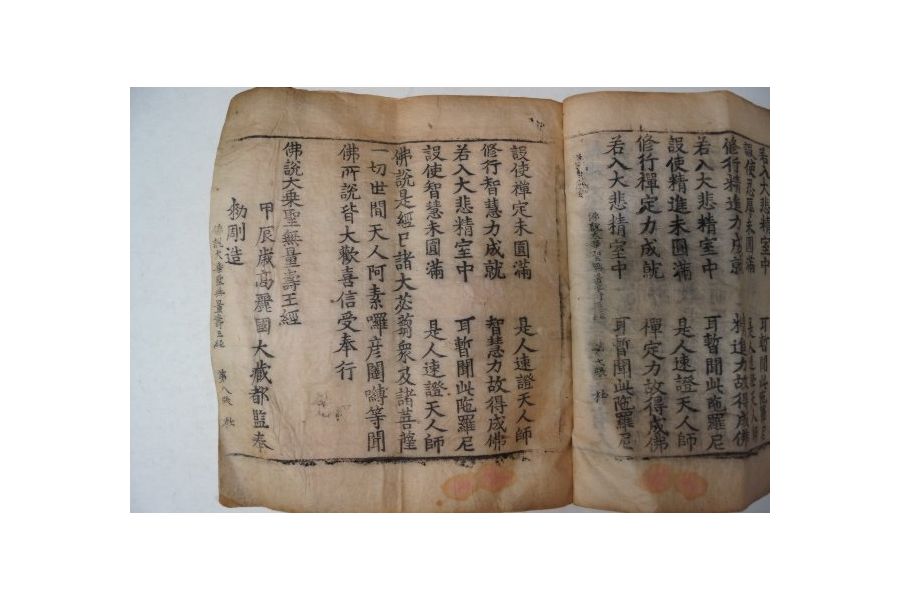 若入大悲精室中 耳暫聞此陁羅尼
設使忍辱未圓滿 是人速證天人師
修行精進力成就 精進力故得成佛
若入大悲精室中 耳暫聞此陁羅尼
設使精進未圓滿 是人速證天人師
修行禪定力成就 禪定力故得成佛
若入大悲精室中 耳暫聞此陁羅尼
設使禪定未圓滿 是人速證天人師
修行智慧力成就 智慧力故得成佛
若入大悲精室中 耳暫聞此陁羅尼
設使智慧未圓滿 是人速證天人師
佛說是經已諸大苾蒭衆及諸菩薩
一切世間天人阿素囉彦闥嚩等聞
佛所說皆大歡喜信受奉行
佛說大乗聖無量壽王經
甲辰歳高麗國大藏都監奉
勑剛造
佛說大乗聖無量壽王經 第八張